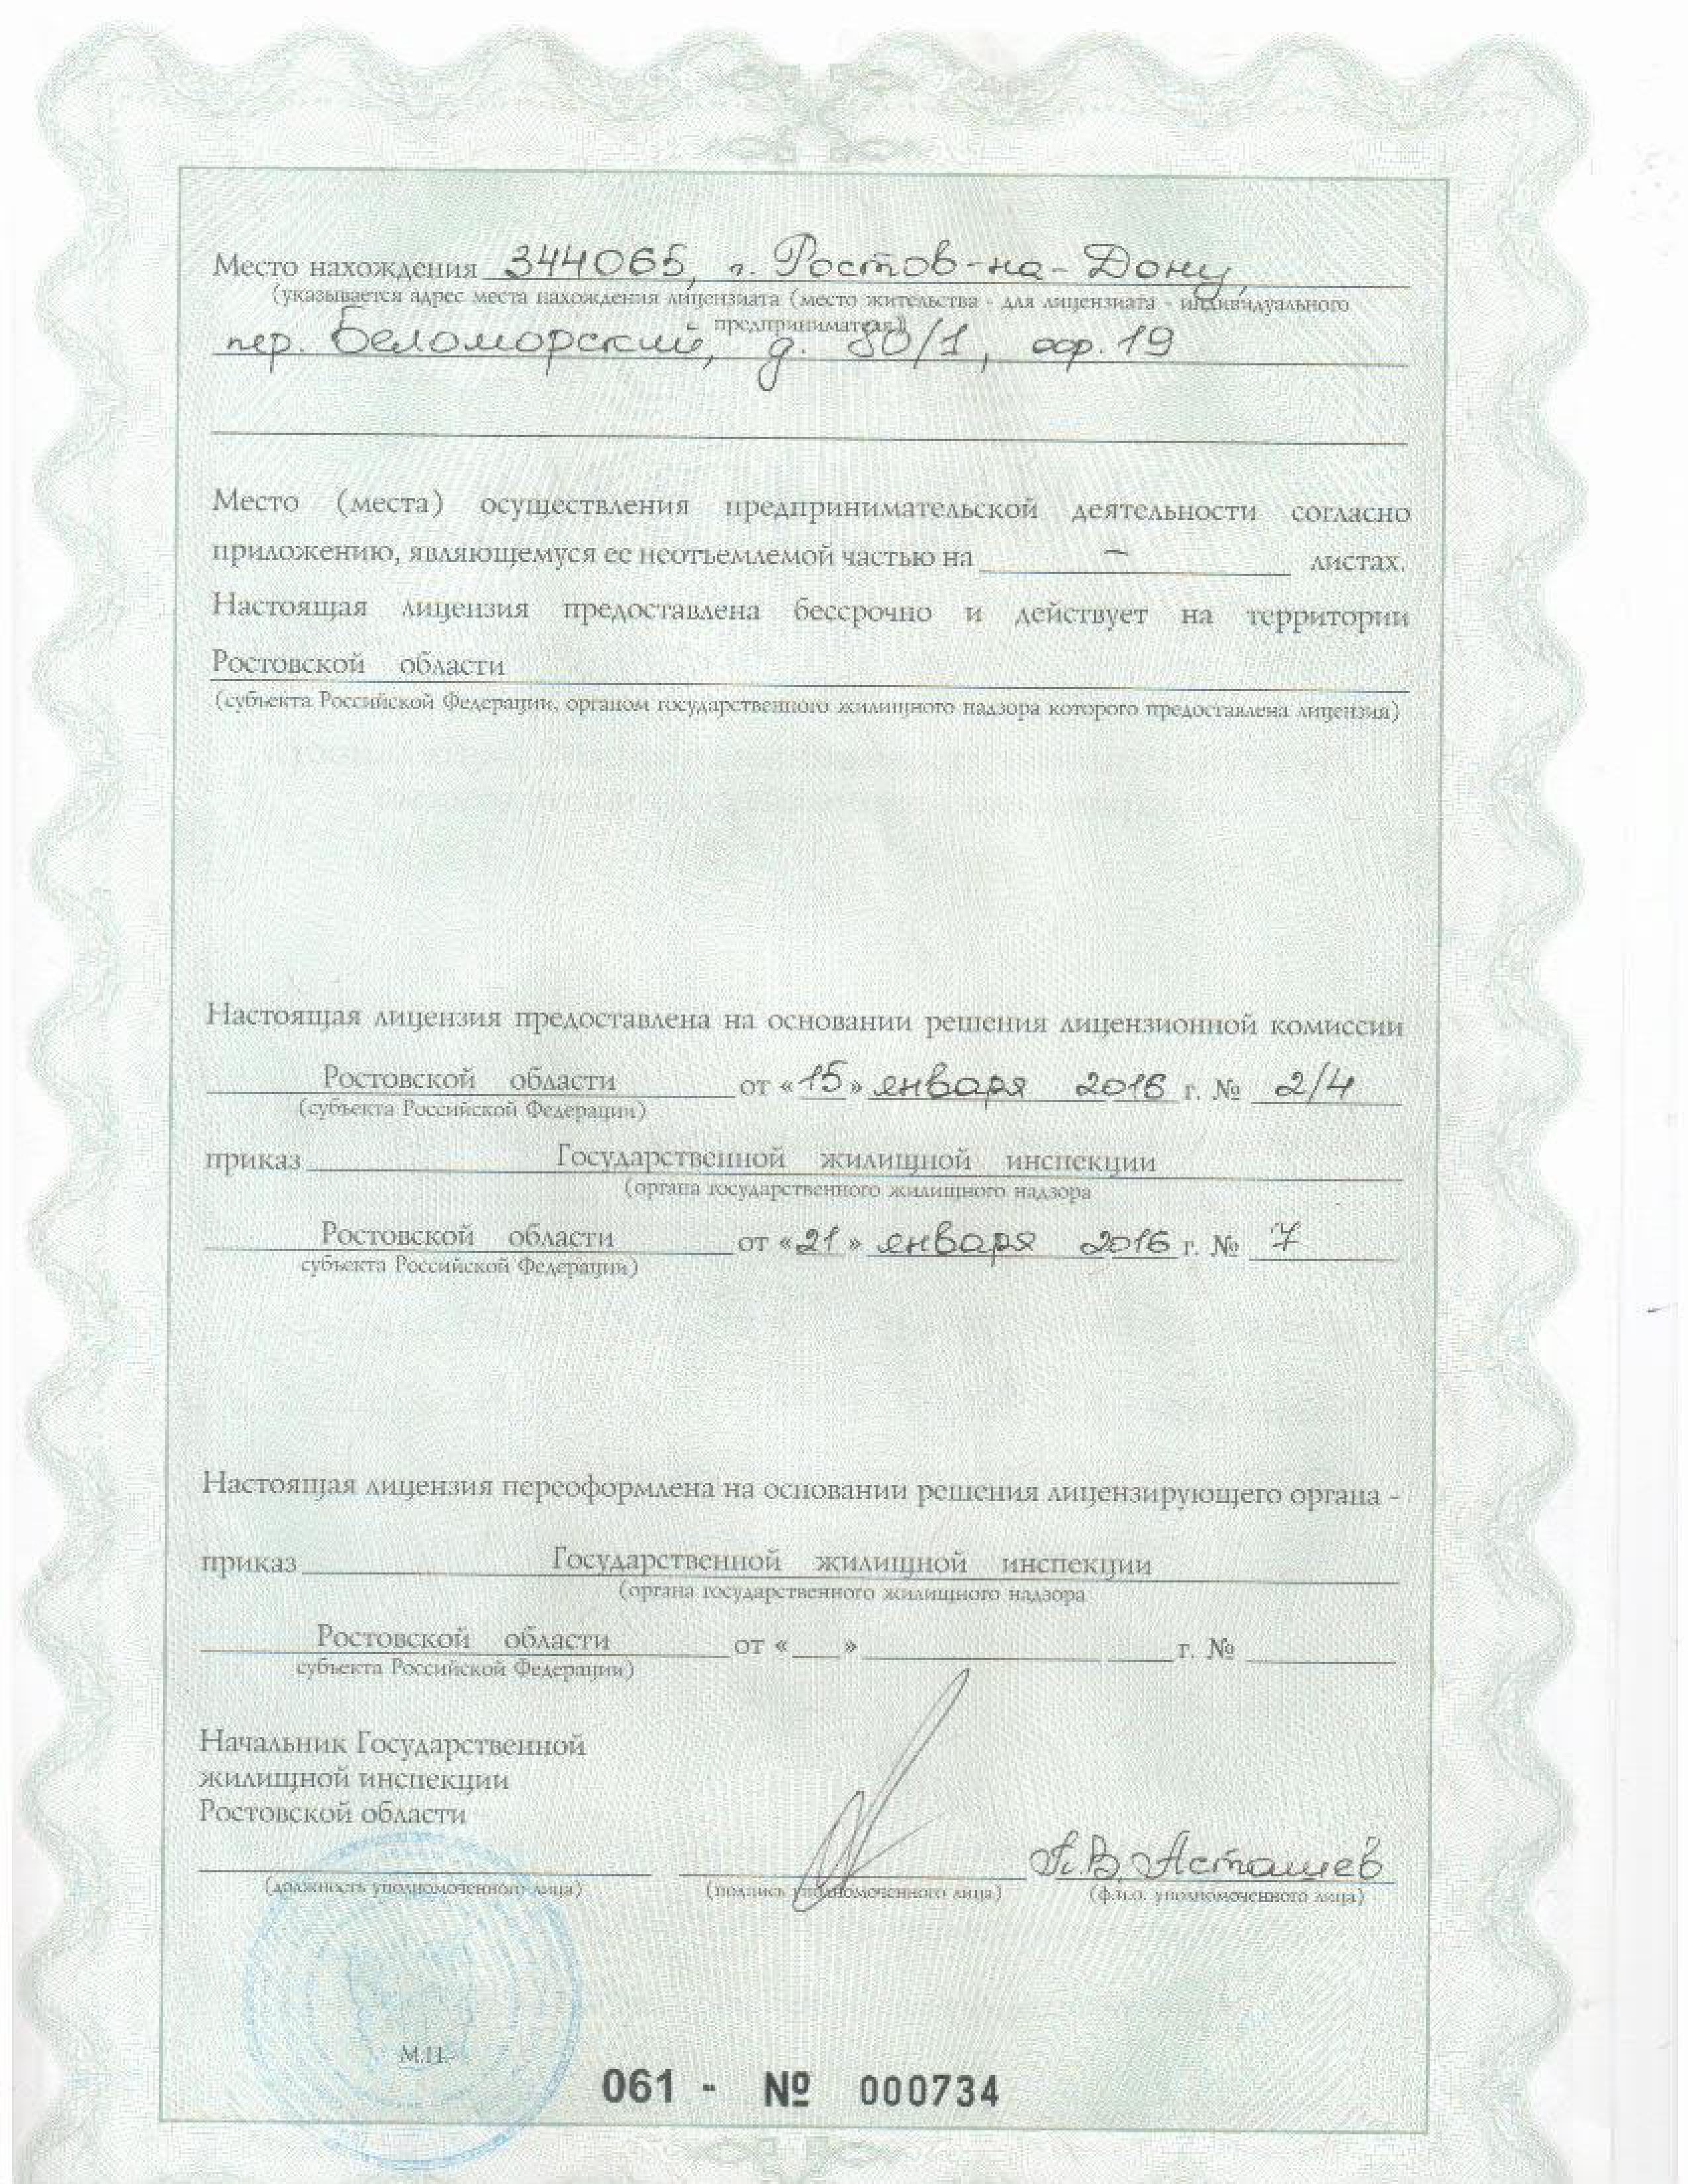 Место нахождения 344065, г. Ростов-на-Дону,
(указывается адрес места нахождения лицензиата (место жительства - для лицензиата - индивидуального
предпринимателя))
пер. Беломорский, д. 80/1, оф. 19
Место (места) осуществления предпринимательской деятельности согласно
приложению, являющемуся ее неотъемлемой частью на – листах.
Настоящая лицензия предоставлена бессрочно и действует на территории
Ростовской области
(субъекта Российской Федерации, органом государственного жилищного надзора которого предоставлена лицензия)
Настоящая лицензия предоставлена на основании решения лицензионной комиссии
Ростовской области от «15» января 2016 г. № 2/4
(субъекта Российской Федерации)
приказ Государственной жилищной инспекции
(органа государственного жилищного надзора
Ростовской области от «21» января 2016 г. № 7
субъекта Российской Федерации)
Настоящая лицензия переоформлена на основании решения лицензирующего органа -
приказ Государственной жилищной инспекции
(органа государственного жилищного надзора
Ростовской области от «___» ___ г. № ___
субъекта Российской Федерации)
Начальник Государственной
жилищной инспекции
Ростовской области
П.В. Асташев
(должность уполномоченного лица) (подпись уполномоченного лица) (ф.и.о. уполномоченного лица)
М.П.
061 - № 000734